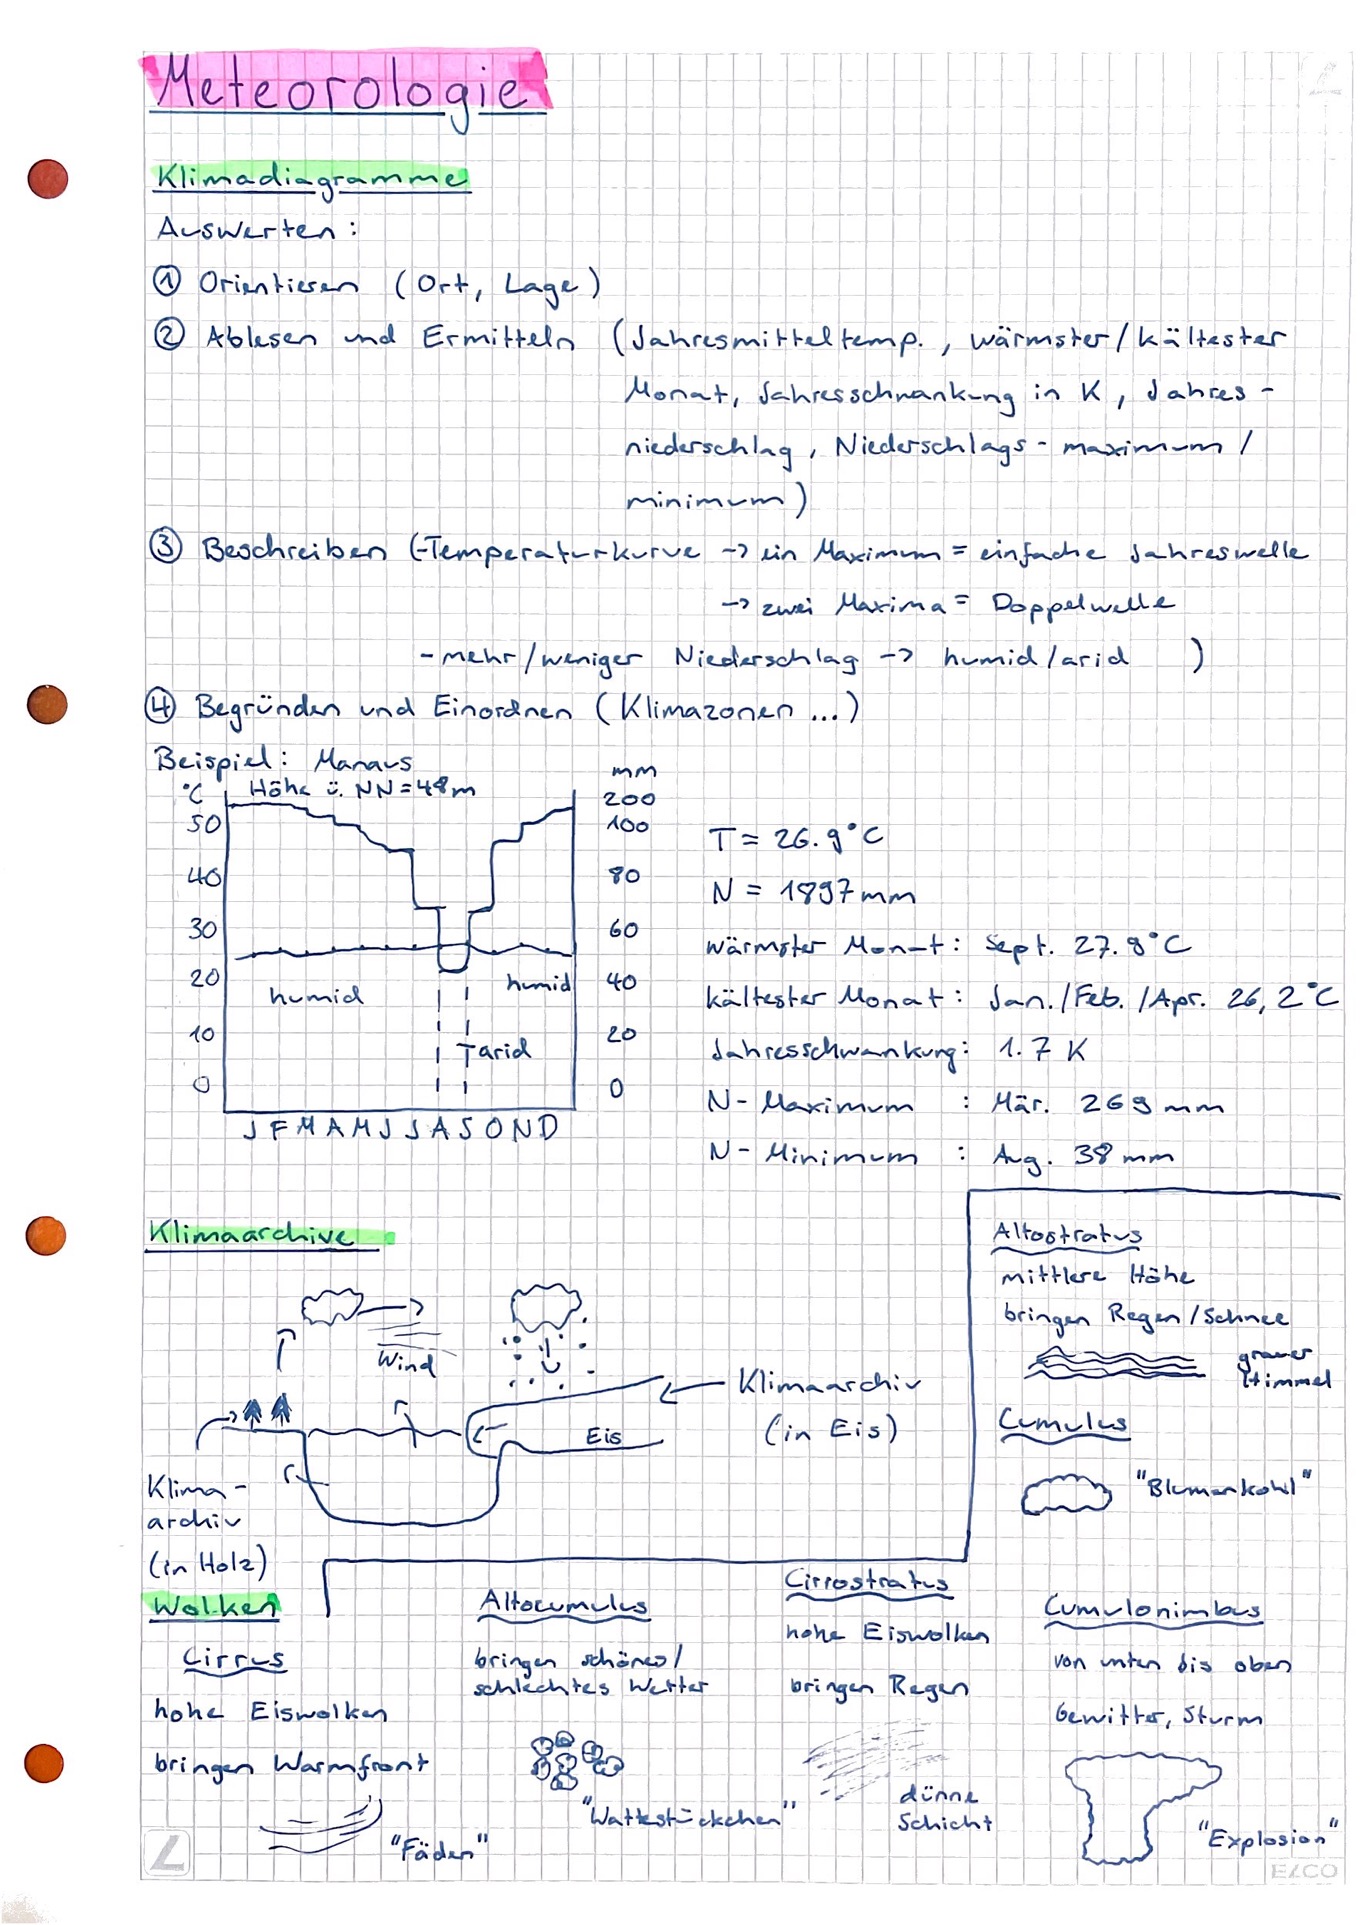 Meteorologie
Klimadiagramme
Auswerten:
① Orientieren (Ort, Lage)
② Ablesen und Ermitteln (Jahresmitteltemp., wärmster/kältester
Monat, Jahresschwankung in K, Jahres-
niederschlag, Niederschlags-maximum/
minimum)
③ Beschreiben (-Temperaturkurve -> ein Maximum = einfache Jahreswelle
-> zwei Maxima = Doppelwelle
- mehr/weniger Niederschlag -> humid/arid )
④ Begründen und Einordnen (Klimazonen ...)
Beispiel: Manaus
°C Höhe ü. NN = 48m mm
200
50 100
40 80
30 60
20 40
10 20
0 0
humid
humid
arid
J F M A M J J A S O N D
T = 26.9°C
N = 1897mm
wärmster Monat: Sept. 27.9°C
kältester Monat: Jan./Feb./Apr. 26,2°C
Jahresschwankung: 1.7 K
N-Maximum : Mär. 269 mm
N-Minimum : Aug. 38 mm
Klimaarchive
Wind
Klimaarchiv
(in Eis)
Eis
Klima-
archiv
(in Holz)
Altostratus
mittlere Höhe
bringen Regen/Schnee
grauer
Himmel
Cumulus
"Blumenkohl"
Wolken
Cirrus
hohe Eiswolken
bringen Warmfront
"Fäden"
Altocumulus
bringen schönes/
schlechtes Wetter
"Wattestückchen"
Cirrostratus
hohe Eiswolken
bringen Regen
dünne
Schicht
Cumulonimbus
von unten bis oben
Gewitter, Sturm
"Explosion"
ELCO